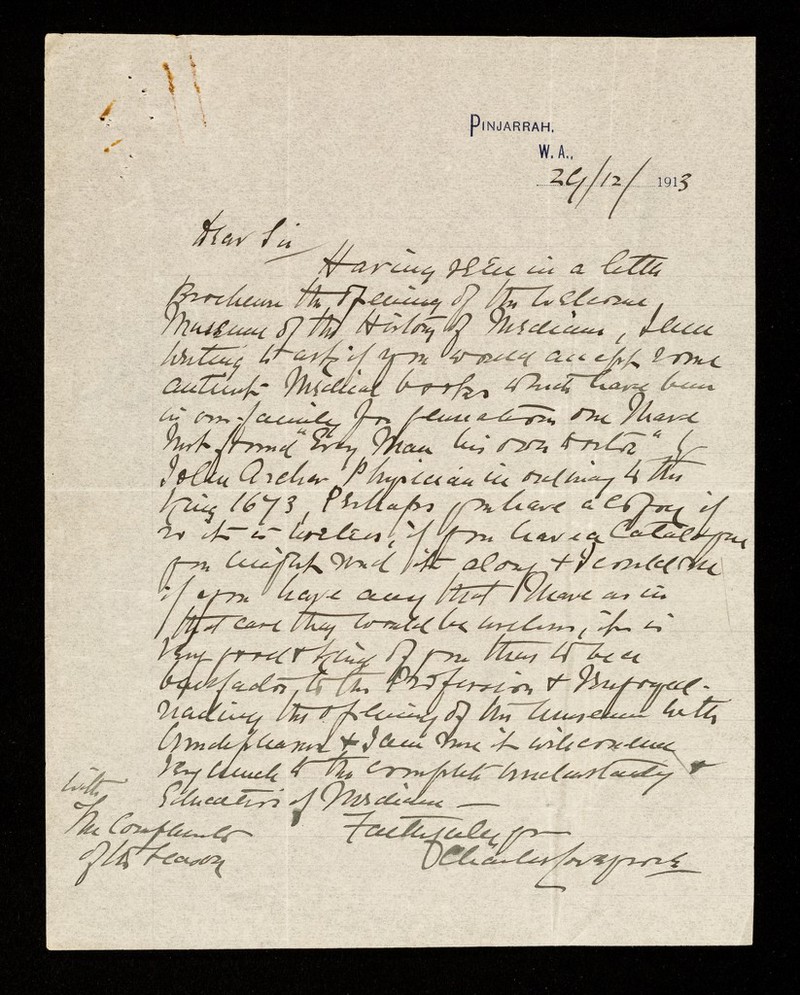 PINJARRAH,
W. A.,
24/12/ 1913
Dear Sir
Having seen in a little
Brochure the opening of the Wellcome
Museum of the History of Medicine, I am
writing to ask if you would accept some
antient Medical books which have been
in our family for generations one I have
just found "Every Man his own Doctor" by
John Archer Physician in ordinary to the
King 1673, Perhaps you have a copy if
so it is useless, if you have a Catalogue
you might send it along & I could see
if you have any that I have as in
that case they would be useless, it is
very good & kind of you thus to be a
to the Profession &
reading the opening of the Museum with
& I am sure it will conduce
very much to the complete understanding &
Education of Medicine —
Faithfully yrs
Charles Lovegrove
with
The Compliments
of the Season